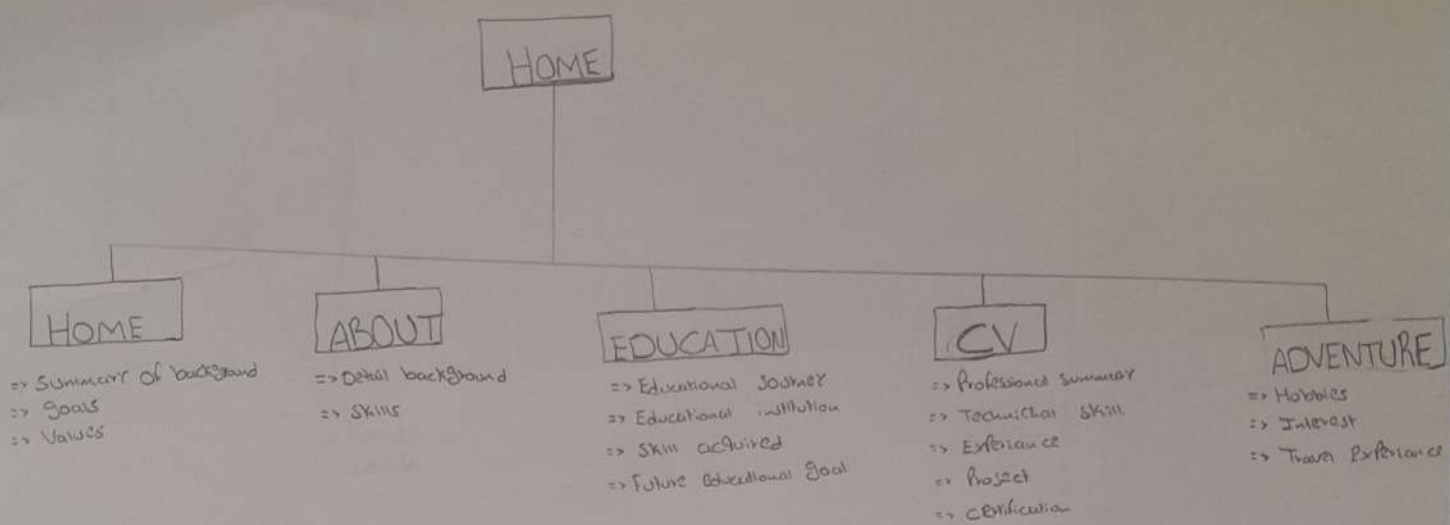 HOME
HOME
=> Summary of background
=> goals
=> Values
ABOUT
=> Detail background
=> Skills
EDUCATION
=> Educational Journey
=> Educational institution
=> Skill acquired
=> Future Educational goal
CV
=> Professional summary
=> Technichal skill
=> Experiance
=> Project
=> Certification
ADVENTURE
=> Hobbies
=> Interest
=> Travel Experiance